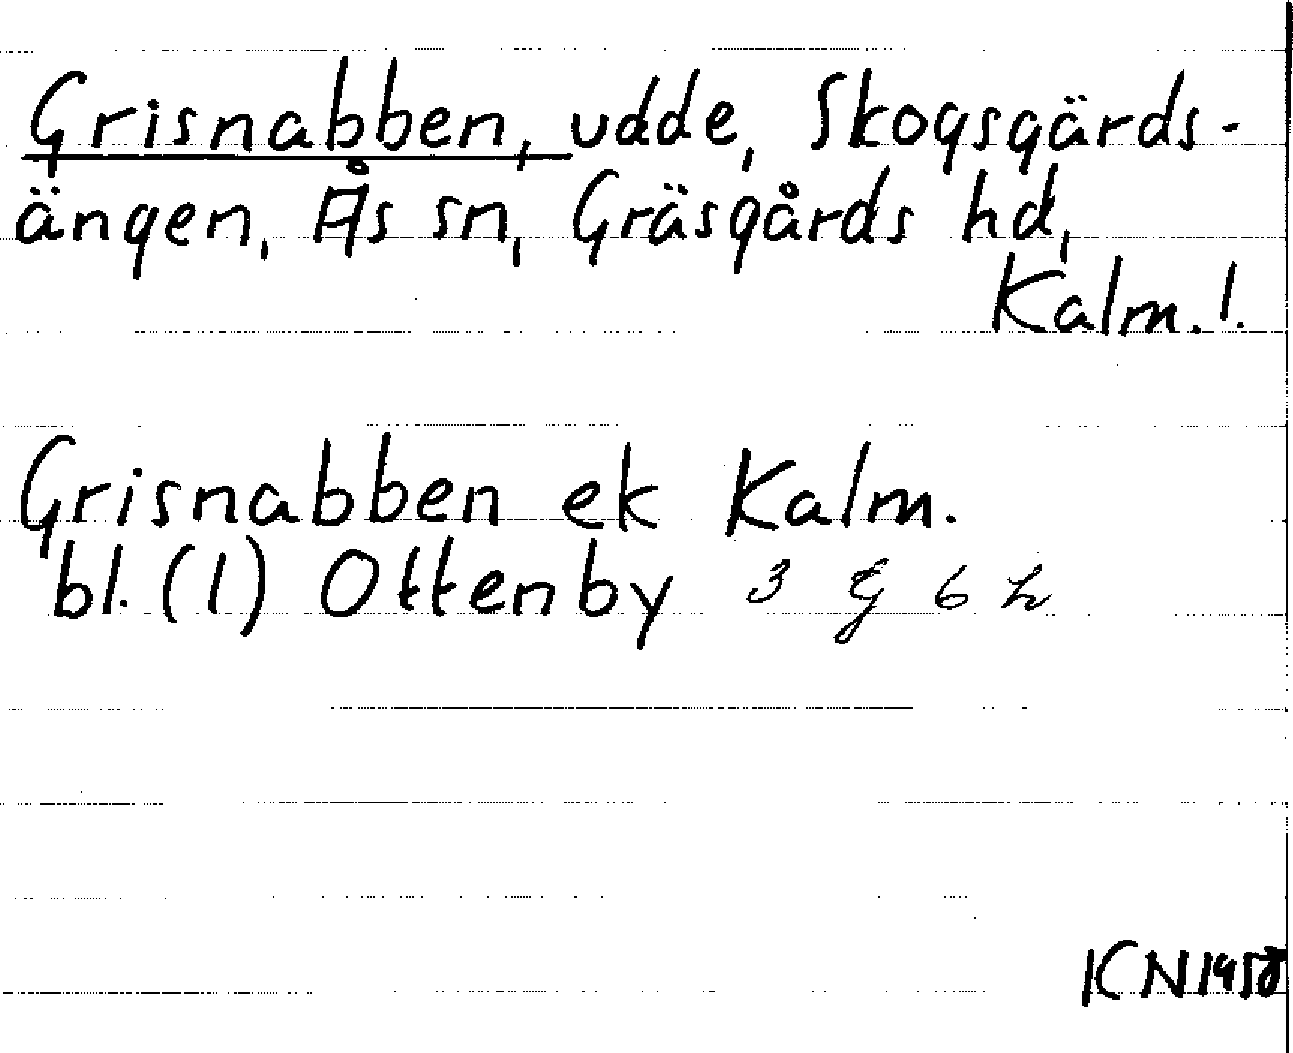 Grisnabben, udde, Skogsgärds-
ängen, Ås sn, Gräsgårds hd,
Kalm. l.
Grisnabben ek Kalm.
bl. (1) Ottenby 3 G 6 h
KN 1958